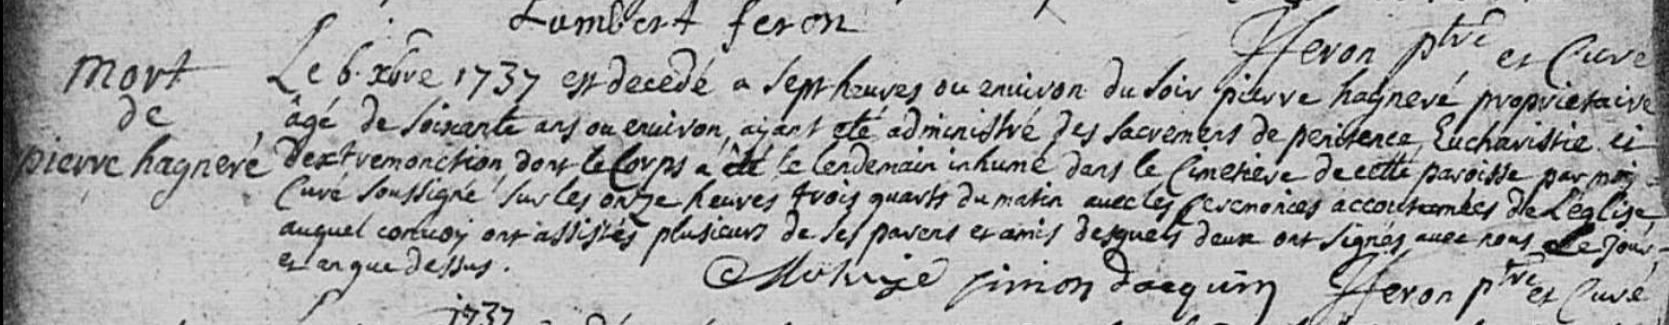 Lambert feron
fferon ptre et Curé
mort
de
pierre hagneré
Le 6. xbre 1737 est decedé a sept heures ou environ du soir pierre hagneré proprietaire
âgé de soixante ans ou environ, aiant eté administré des sacremens de penitence, Eucharistie et
d'extremonction, dont le Corps a été le lendemain inhumé dans le Cimetiere de cette paroisse par moy
Curé soussigné sur les onze heures trois quarts du matin avec les ceremonies accoutumées de L'eglise
auquel convoy ont assistés plusieurs de ses parens et amis desquels deux ont signés avec nous Le jour,
et an que dessus.
simon dacquin fferon ptre et Curé
1737